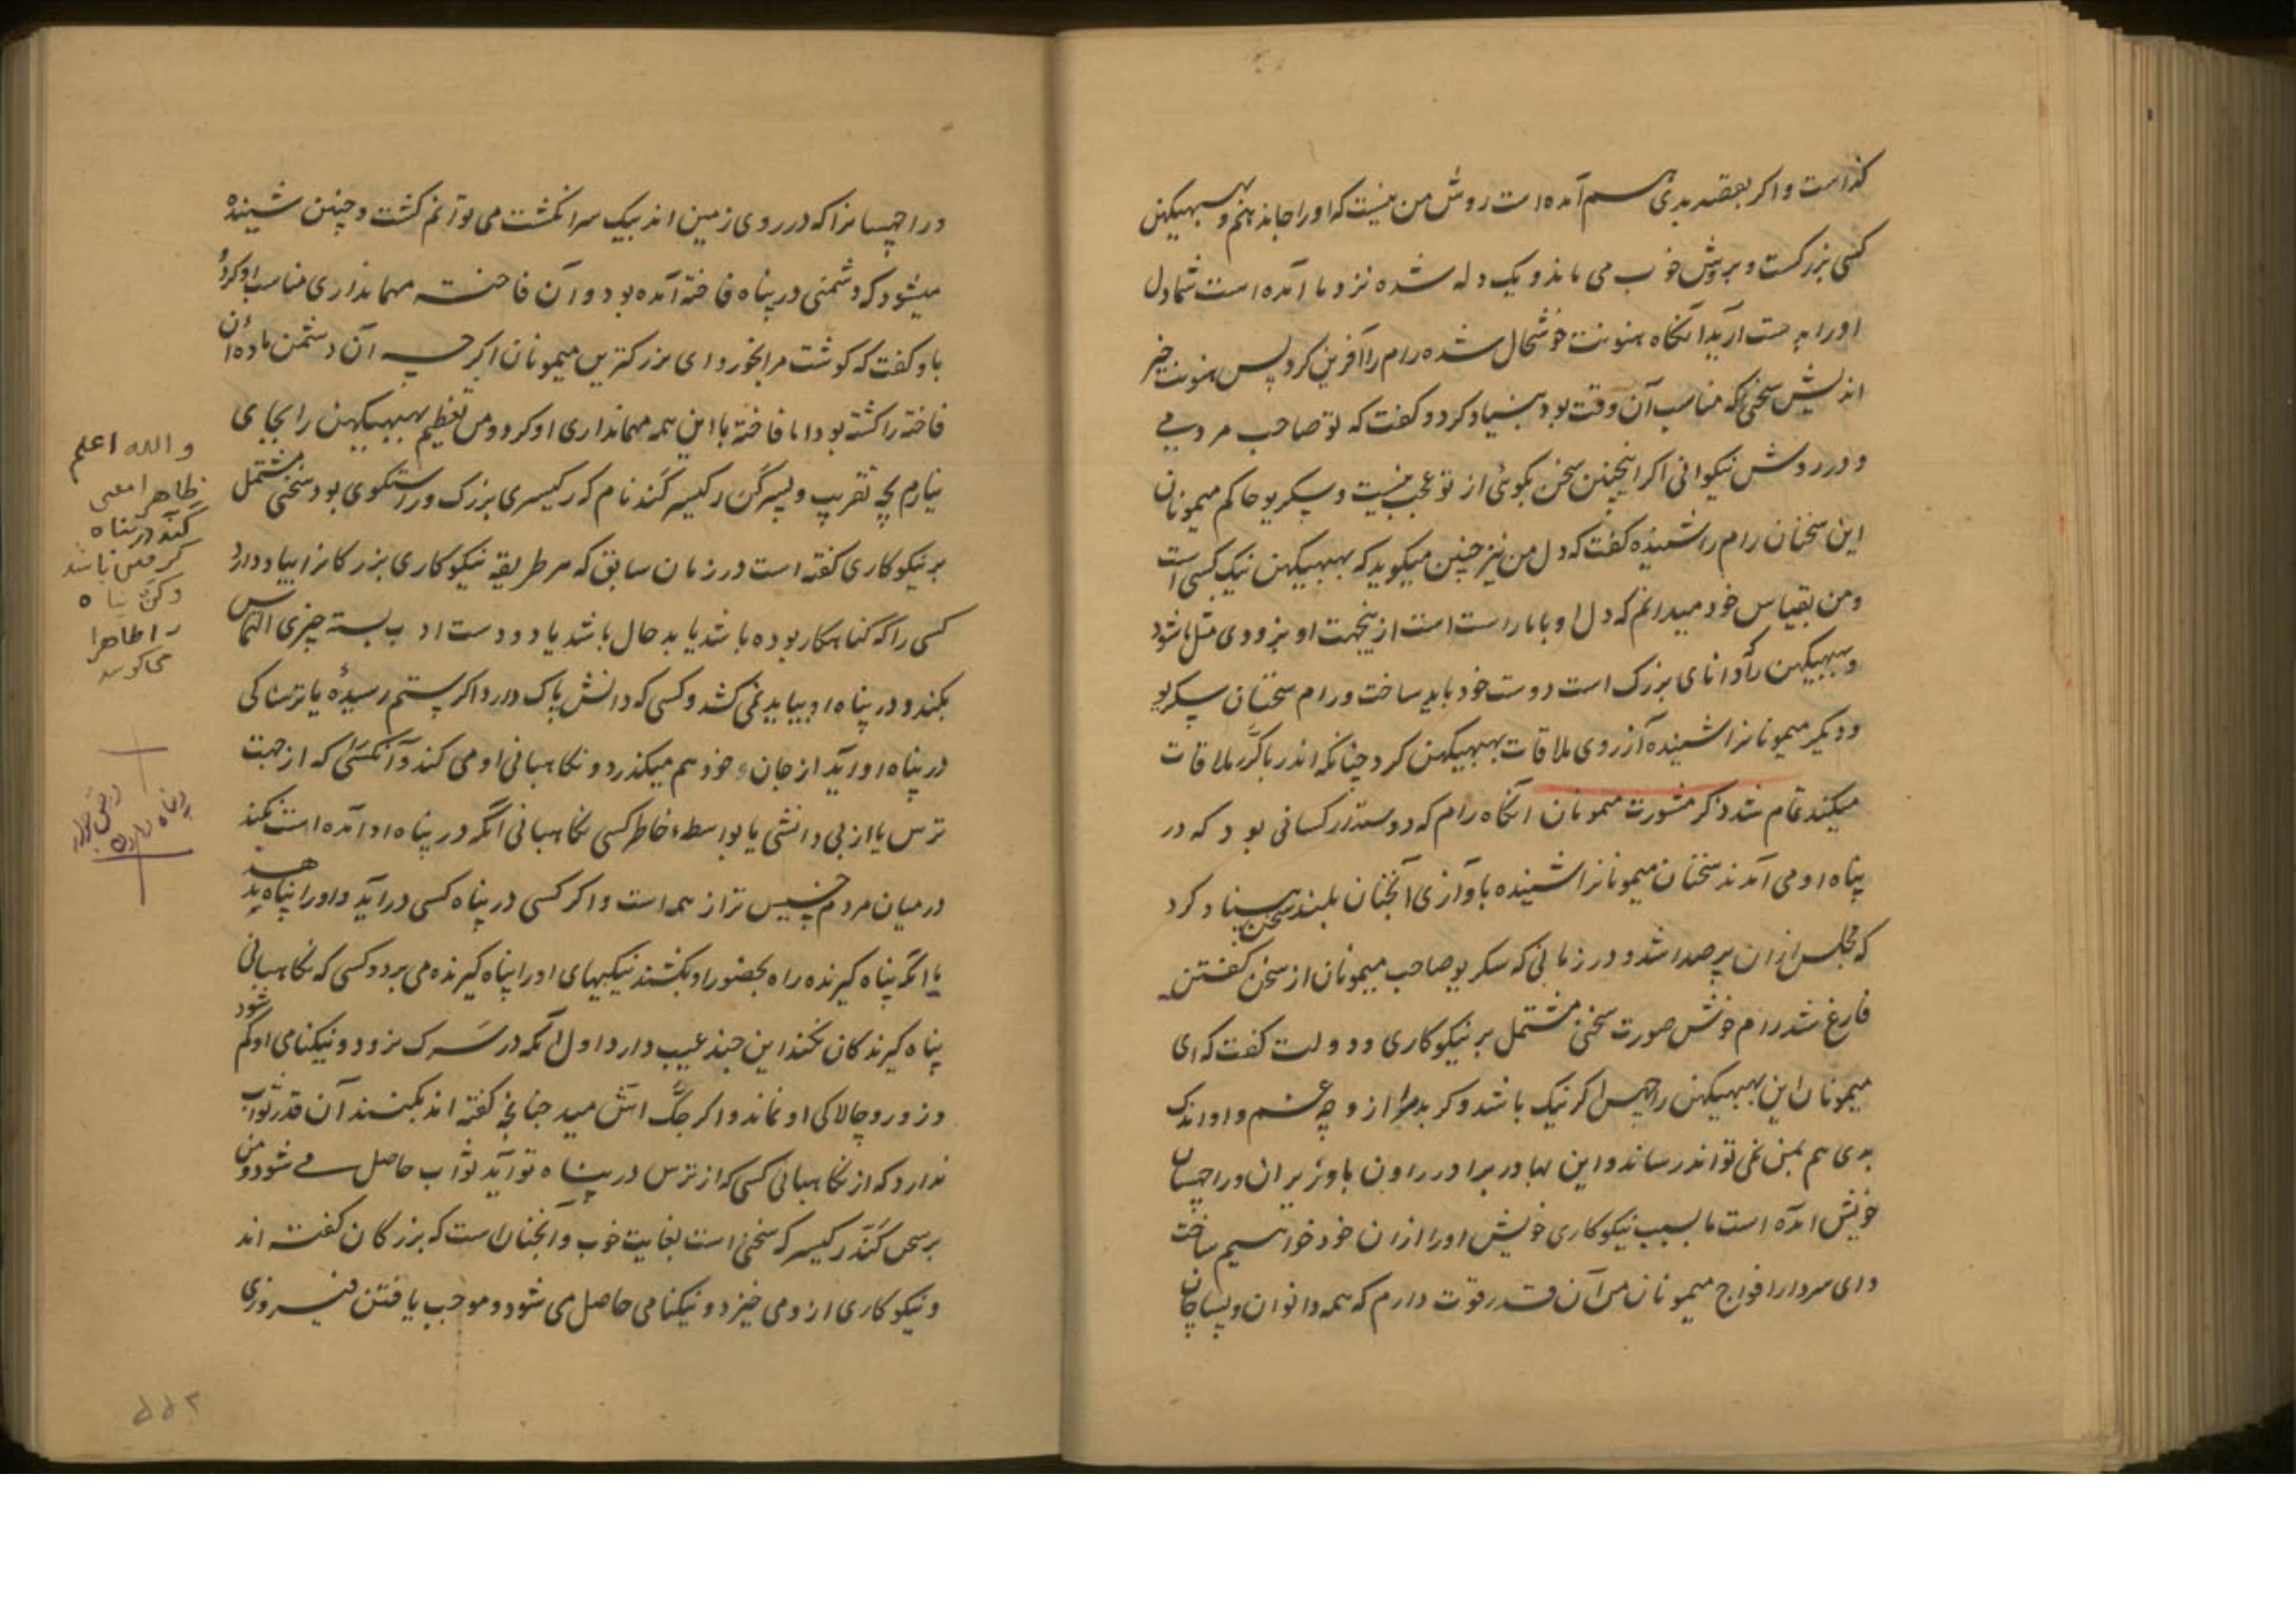 کذاست و اکر بقصد بدی هم آمده است روش من نیست که او را جا ندهم و بهبیکهن
کسی بزرکست و بروش خوب می ماند و یک دله شده نزد ما آمده است شما دل
او را بدست آرید آنکاه هنونت خوشحال شده رام را آفرین کرد پس هنونت خیر
اندیش سخنی که مناسب آن وقت بود بنیاد کرد و کفت که تو صاحب مردمی
و در روش نیکوانی اکر اینچنین سخن بکوئی از تو عجب نیست و سکریو حاکم میمونان
این سخنان رام را شنیده کفت که دل من نیز چنین میکوید که بهبیکهن نیک کسی است
و من بقیاس خود میدانم که دل او با ما راست است ازینجهت او بزودی مثل ما شود
و بهبیکهن را که دانای بزرک است دوست خود باید ساخت و رام سخنان سکریو
و دیکر میمونانرا شنیده آرزوی ملاقات بهبیکهن کرد چنانکه اندر با کرر ملاقات
میکند تمام شد ذکر مشورت میمونان آنکاه رام که دوستدار کسانی بود که در
پناه او می آمدند سخنان میمونانرا شنیده باوازی آنچنان بلند سخن بنیاد کرد
که مجلس ازان پرصدا شد و در زمانی که سکریو صاحب میمونان از سخن کفتن
فارغ شد رام خوش صورت سخنی مشتمل بر نیکوکاری و دولت کفت که ای
میمونان این بهبیکهن راچهس اکر نیک باشد و کر بد مرا ازو چه غم و او اندک
بدی هم بمن نمی تواند رساند و این بهادر برادر راون با وزیران و راچهسان
خویش آمده است ما بسبب نیکوکاری خویش او را ازان خود خواهیم ساخت
و ای سردار افواج میمونان من آن قدر قوت دارم که همه دانوان و پساچان
و راچهسانرا که در روی زمین اند بیک سر انکشت می توانم کشت و چنین شنیده
میشود که دشمنی در پناه فاخته آمده بود و آن فاخته مهمانداری مناسب او کرد و
باو کفت که کوشت مرا بخور و ای بزرکترین میمونان اکرچه آن دشمن ماده آن
فاخته را کشته بود اما فاخته با این همه مهمانداری او کرد و من تعظیم بهبیکهن را بجای
نیارم بچه تقریب و پسر کن رکیسر کند نام که رکیسری بزرک و راستکوی بود سخنی مشتمل
بر نیکوکاری کفته است در زمان سابق که هر طریقه نیکوکاری بزرکانرا بیاد دارد
کسی را که کناهکار بوده باشد یا بدحال باشد یا دو دست او بسته چیزی التماس
بکند و در پناه او بیاید نمی کشد و کسی که دانش پاک دارد اکر ستم رسیدهٔ یا ترسناکی
در پناه او آید از جان خود هم میکذرد و نکاهبانی او می کند و آنکسی که از جهت
ترس یا از بی دانشی یا بواسطهٔ خاطر کسی نکاهبانی آنکه در پناه او آمده است نکند
در میان مردم خسیس تر از همه است و اکر کسی در پناه کسی در آید و او را پناه ندهد
یا آنکه پناه کیرنده را بحضور او بکشند نیکیهای او را پناه کیرنده می برد و کسی که نکاهبانی
پناه کیرندکان نکند این چند عیب دارد اول آنکه در سرک نرود و نیکنامی او کم شود
و زور و چالاکی او نماند و اکر جک اش مید چنانچه کفته اند بکنند آن قدر ثواب
ندارد که از نکاهبانی کسی که از ترس در پناه تو آید ثواب حاصل می شود و من
بر سخن کند رکیسر که سخنی است بغایت خوب و آنچنان است که بزرکان کفته اند
و نیکوکاری ازو می خیزد و نیکنامی حاصل می شود و موجب یافتن فیروزی
والله اعلم
ظاهرا معنی
کند در پناه
کرفتن باشد
پناه
را ظاهرا
۵۵۲